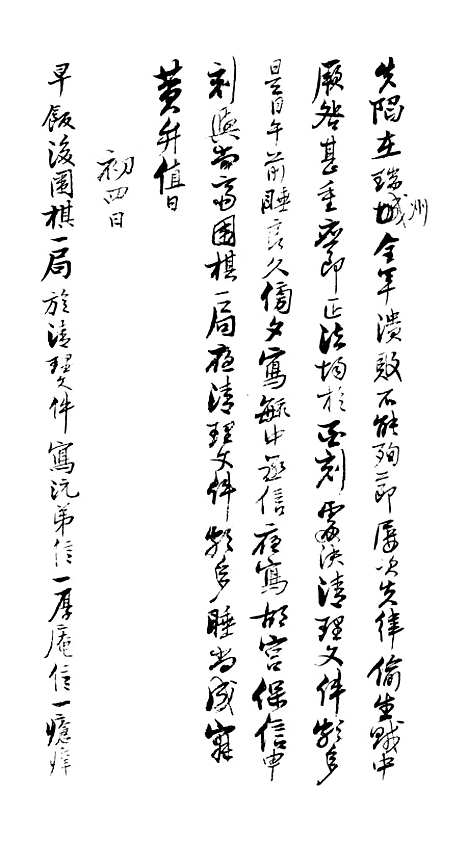 失陷在瑞州城全军溃败不能殉节屡次失律偷生贼中
厥咎甚重应即正法均于酉刻处决清理文件颇多
是日午前睡良久傍夕写毓中丞信夜写胡宫保信申
刻与尚斋围棋一局夜清理文件颇多睡尚成寐
黄弁值日
初四日
早饭后围棋一局旋清理文件写沅弟信一厚庵信一癔痒